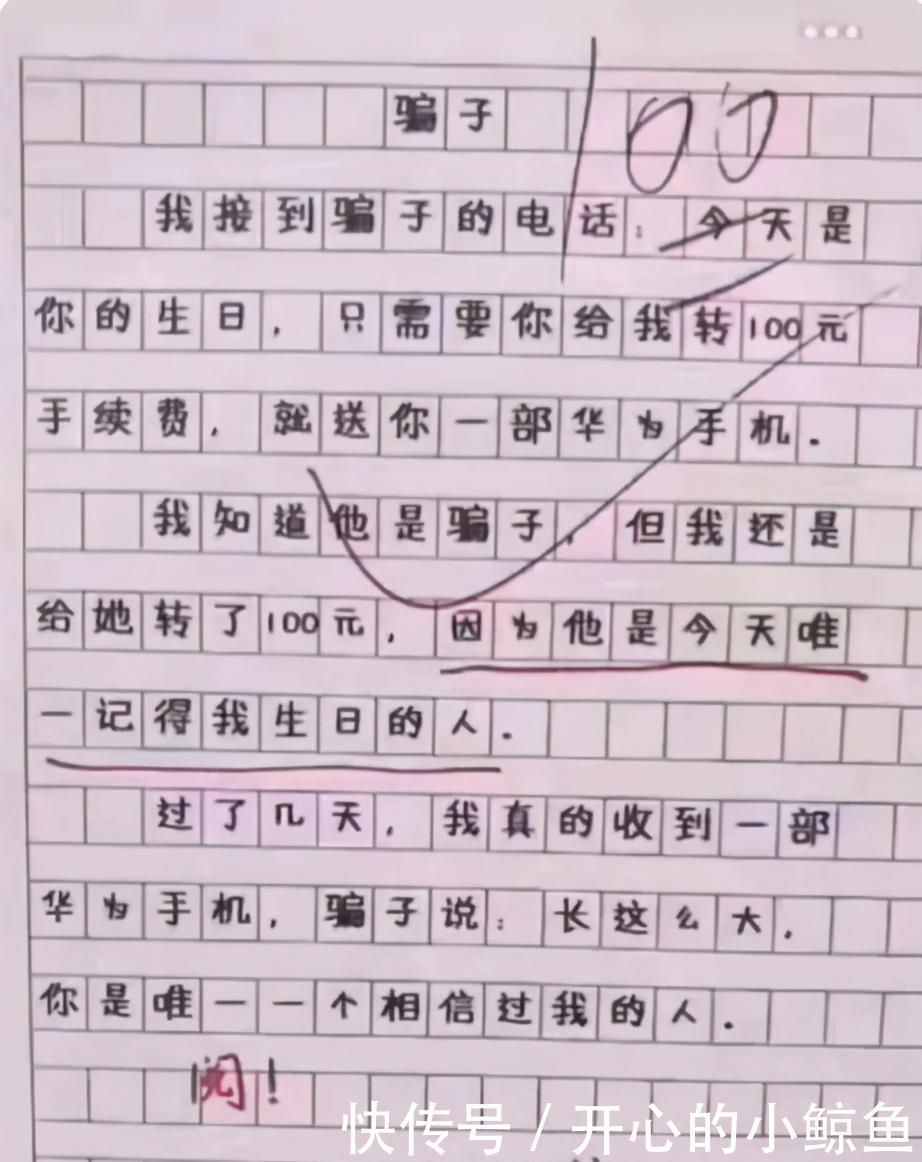 骗子
100
我接到骗子的电话：今天是
你的生日，只需要你给我转100元
手续费，就送你一部华为手机。
我知道他是骗子，但我还是
给她转了100元，因为他是今天唯
一记得我生日的人。
过了几天，我真的收到一部
华为手机，骗子说：长这么大，
你是唯一一个相信过我的人。
阅！
快传号/开心的小鲸鱼